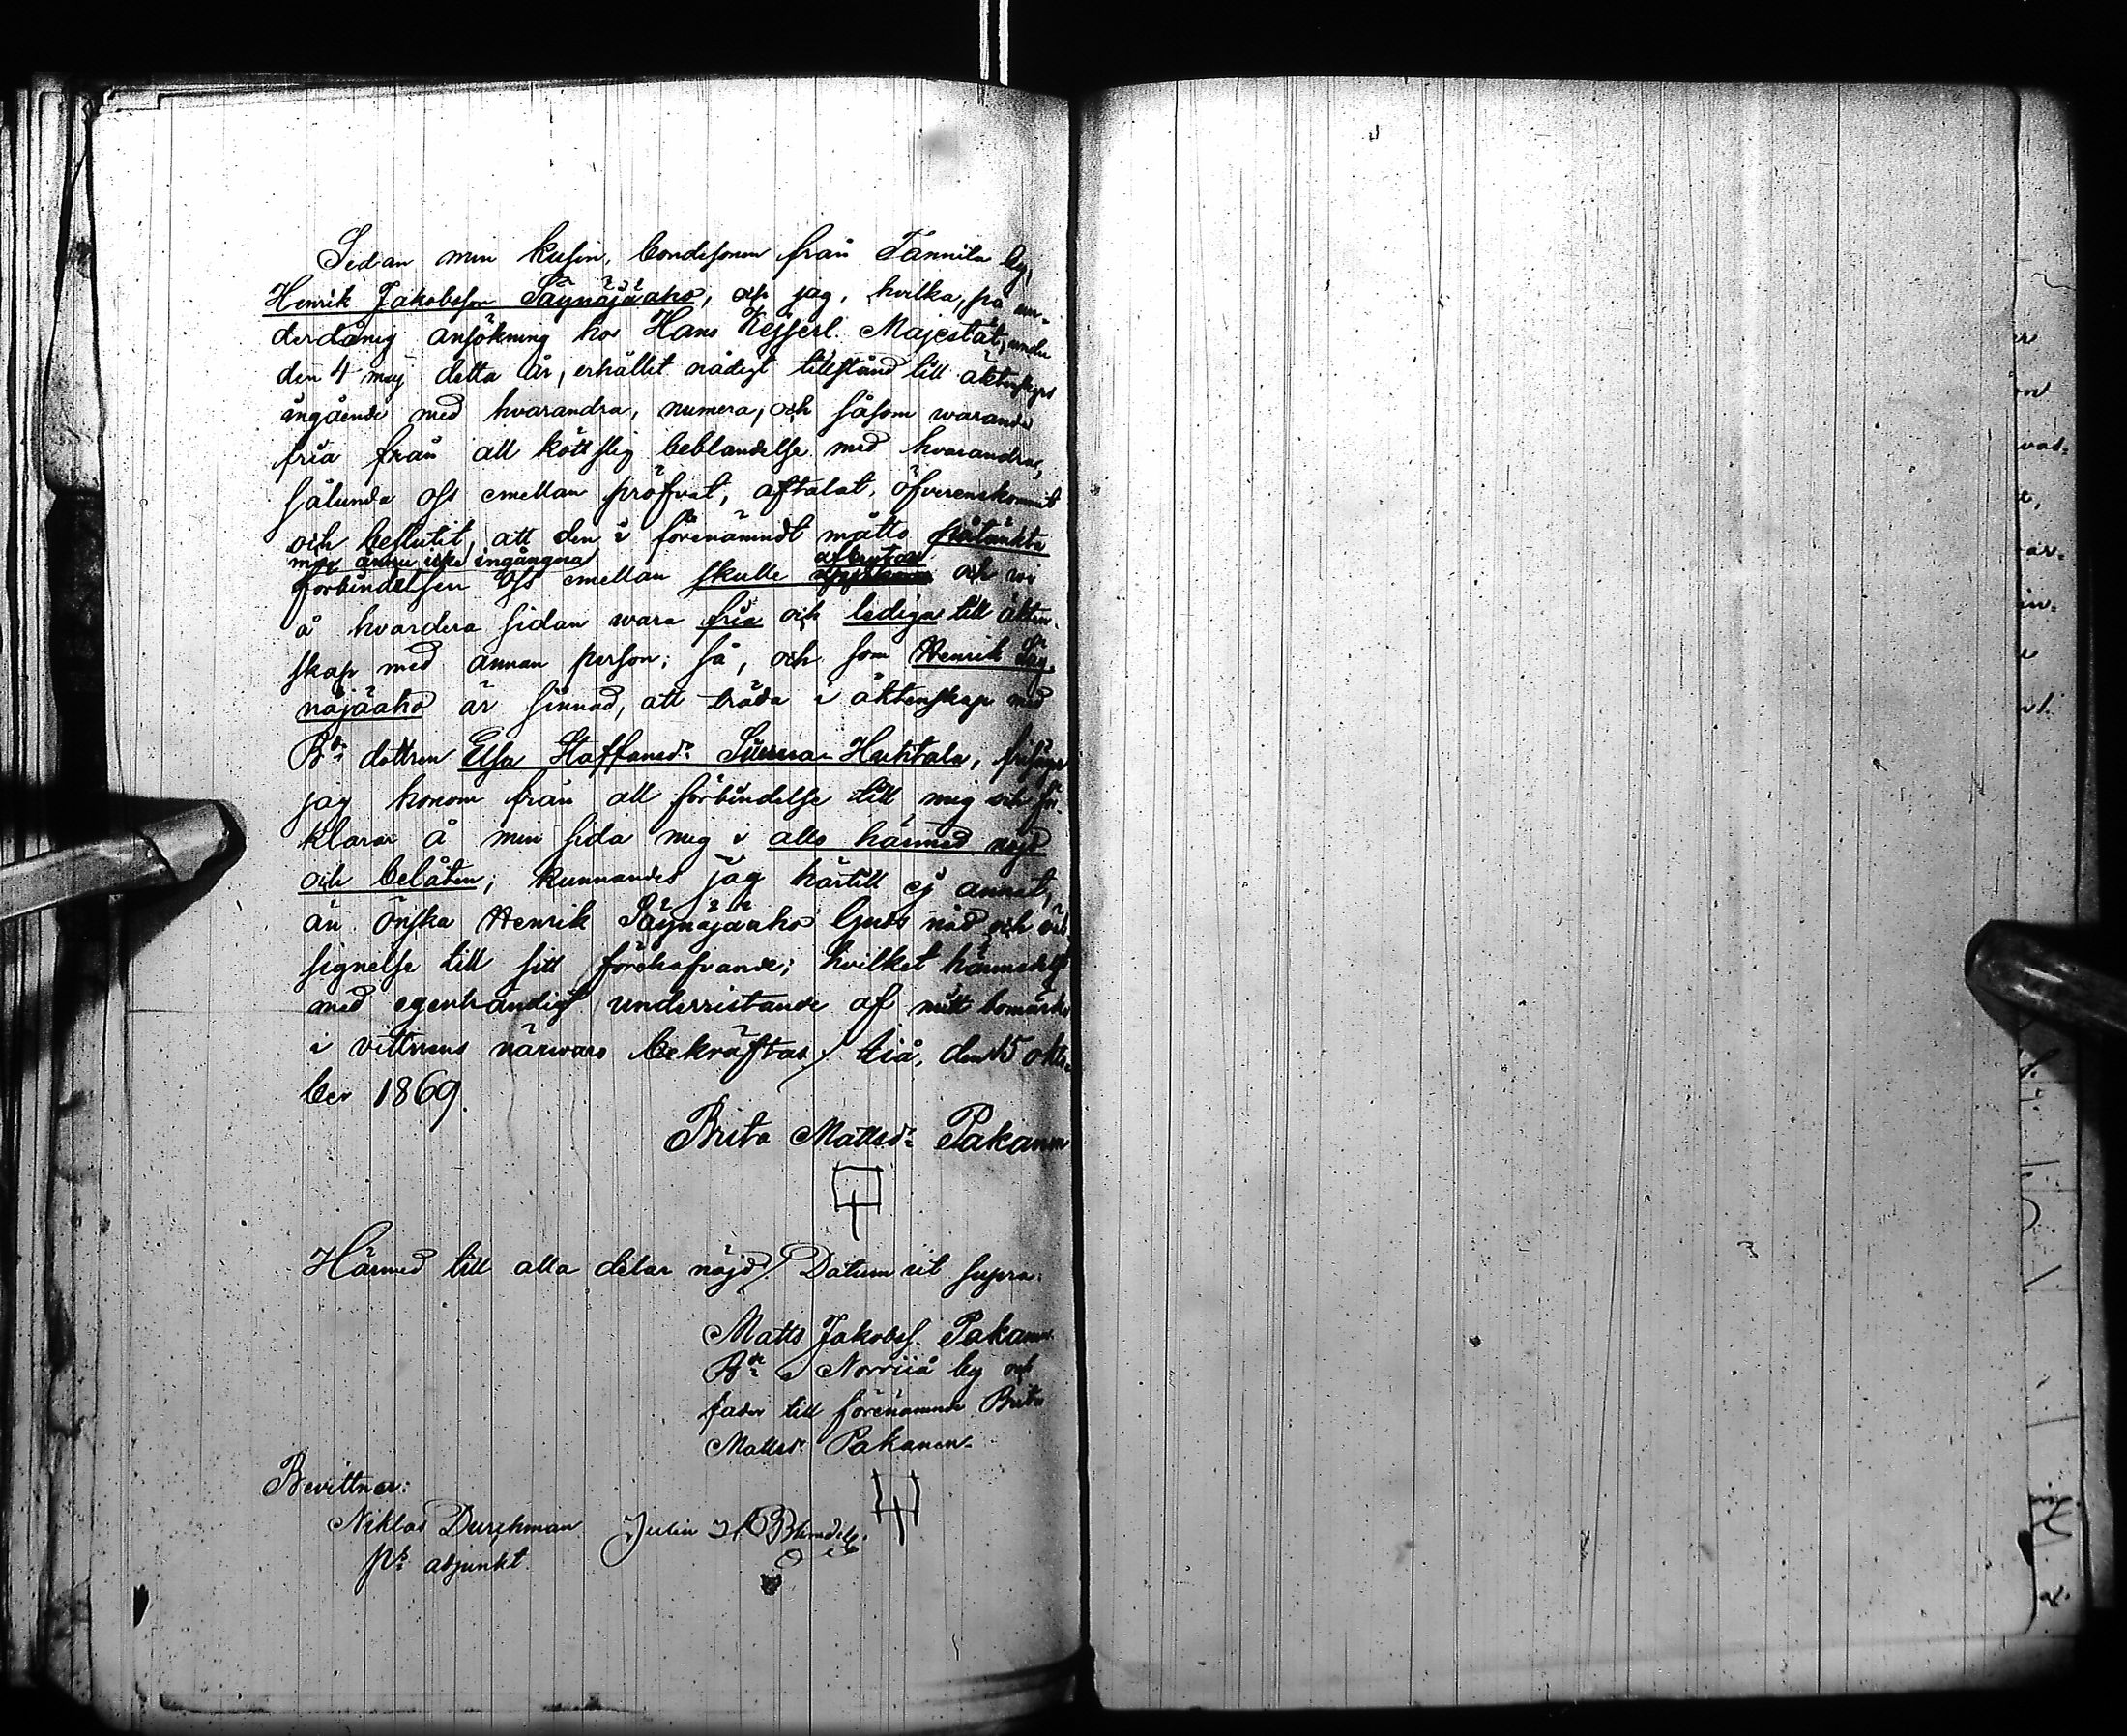 Sedan min kusin, bondesonen från Tannila by,
Henrik Jakobsson Säynäjäaho, och jag, hvilka, på un-
derdånig ansökning hos Hans Kejserl. Majestät, under
den 4 maj detta år, erhållit nådigt tillstånd till äktenskaps
ingående med hvarandra, numera, och såsom warande
fria från all köttslig beblandelse med hvarandra,
sålunda oss emellan pröfvat, aftalat, öfverenskommit
och beslutit, att den i förenämndt måtto påtänkta
men ännu icke ingångna afbrytas
förbindelsen oss emellan skulle och wi
å hvardera sidan wara fria och lediga till äkten-
skap med annan person; så, och som Henrik Säy-
näjäaho är sinnad, att träda i äktenskap med
Bde dottren Elsa Staffansdr Huhtala, frisäger
jag honom från all förbindelse till mig och för-
klarar å min sida mig i allo härmed nöjd
och belåten; kunnandes jag härtill ej annat,
än önska Henrik Säynäjäaho Guds nåd och väl-
signelse till sitt förehafvande; hvilket härmedelst
med egenhändigt underristande af mitt bomärke
i vittnens närwaro bekräftas. Iiå, den 15 okto-
ber 1869.
Brita Mattsdr Pakanen
Härmed till alla delar nöjd. Datum ut supra.
Matts Jakobss. Pakanen
Bde i Norriiå by och
fader till förenämnde Brita
Mattsdr Pakanen.
Bevittnar:
Niklas Durchman
ps adjunkt.